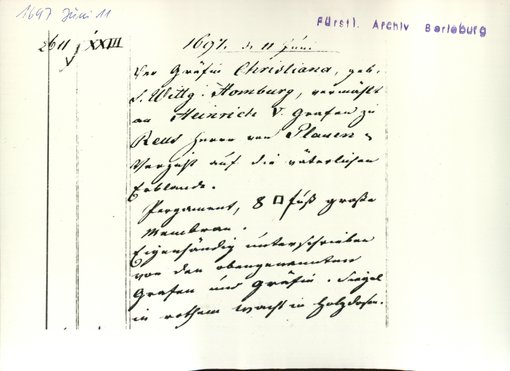 1697 Juni 11
Fürstl. Archiv Berleburg
2611 XXIII
1697. d. 11 Juni.
Der Gräfin Christiana, geb.
S. Wittg: Homburg, vermählt
an Heinrich V. Grafen zu
Reus Herrn von Plauen
Verzicht auf die väterlichen
Erblande.
Pergament, 8 □ Fuß große
Membran.
Eigenhändig unterschrieben
von den obengenannten
Grafen und Gräfin. Siegel
in rothem Wachs in Holzdose.